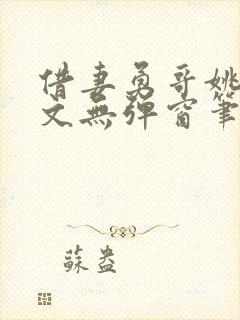 借妻勇哥姚
文無彈窗筆
蘇盎